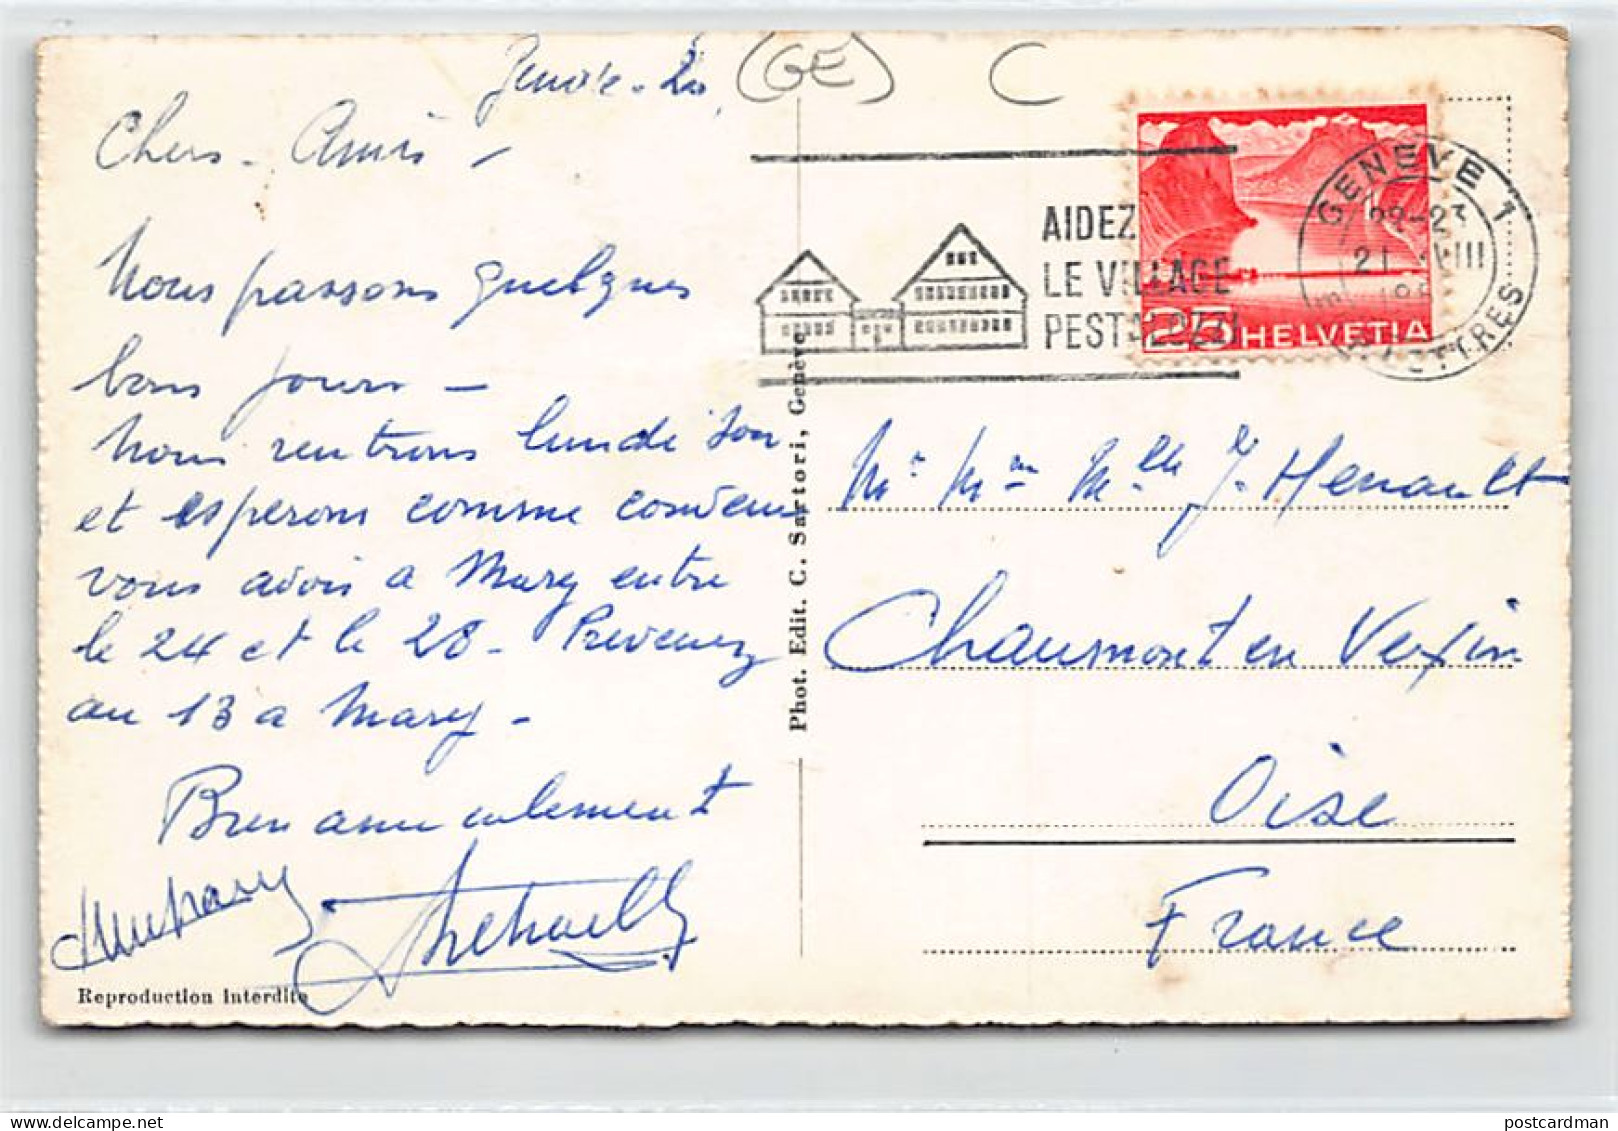 Genève - 20
(GE)
C
Chers - Amis -
Nous passons quelques
bons jours -
Nous rentrons lundi
et esperons comme convenu
vous avoir a Marcy entre
le 24 et le 28 - Prevenez
au 13 a Marcy -
Bien amicalement
Reproduction interdite
Phot. Edit. C. Sartori, Genève
AIDEZ
LE VILLAGE
PESTALOZZI
25 HELVETIA
GENEVE 1
22-23
21 VIII
LETTRES
Mr Mme Mlle J. Henault
Chaumont en Vexin
Oise
France
postcardman